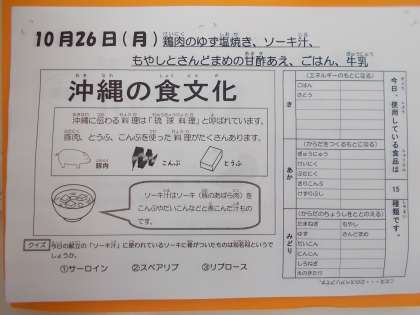 10月26日(月)
鶏肉のゆず塩焼き、ソーキ汁、
もやしとさんどまめの甘酢あえ、ごはん、牛乳
沖縄の食文化
沖縄に伝わる料理は「琉球料理」と呼ばれています。
豚肉、とうふ、こんぶを使った料理がたくさんあります。
豚肉
こんぶ
とうふ
ソーキ汁はソーキ(豚のあばら肉)を
こんぶやだいこんなどと煮こんだ汁もの
です。
クイズ 今日の献立の「ソーキ汁」に使われているソーキに骨がついたものは別名何というで
しょうか。
①サーロイン ②スペアリブ ③リブロース
今日、使用している食品は 15 種類です。
き
(エネルギーのもとになる)
ごはん
さとう
あか
(からだをつくるもとになる)
ぎゅうにゅう
けいにく
ぶたにく
きりこんぶ
けずりぶし
みどり
(からだのちょうしをととのえる)
たまねぎ もやし
ゆず さんどまめ
だいこん
にんじん
しろねぎ